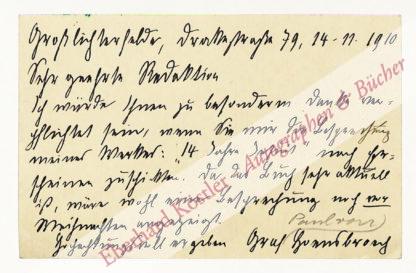 Großlichterfelde, Drakestraße 79, 14-11. 1910
Sehr geehrte Redaktion
Ich würde Ihnen zu besonderem Danke ver-
pflichtet sein, wenn Sie mir die Besprechung
meines Werkes: "14 Jahre Jesuit" nach Er-
scheinen zuschickten. Da das Buch sehr aktuell
ist, wäre wohl eine Besprechung noch vor
Weihnachten angezeigt.
(Paul von)
Hochachtungsvoll ergeben Graf Hoensbroech
Eberhard Köstler Autographen & Bücher